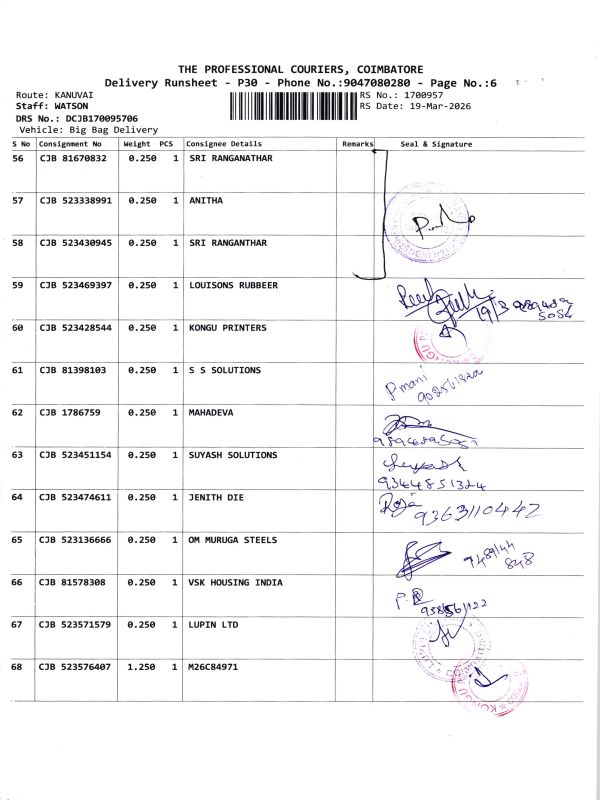 THE PROFESSIONAL COURIERS, COIMBATORE
Delivery Runsheet - P30 - Phone No.:9047080280 - Page No.:6
Route: KANUVAI
RS No.: 1700957
Staff: WATSON
RS Date: 19-Mar-2026
DRS No.: DCJB170095706
Vehicle: Big Bag Delivery
S No Consignment No Weight PCS Consignee Details Remarks Seal & Signature
56 CJB 81670832 0.250 1 SRI RANGANATHAR
57 CJB 523338991 0.250 1 ANITHA
58 CJB 523430945 0.250 1 SRI RANGANTHAR
59 CJB 523469397 0.250 1 LOUISONS RUBBEER
19/3
60 CJB 523428544 0.250 1 KONGU PRINTERS
61 CJB 81398103 0.250 1 S S SOLUTIONS
P mani
62 CJB 1786759 0.250 1 MAHADEVA
63 CJB 523451154 0.250 1 SUYASH SOLUTIONS
Suyash
9364851324
64 CJB 523474611 0.250 1 JENITH DIE
Roja 9363110442
65 CJB 523136666 0.250 1 OM MURUGA STEELS
66 CJB 81578308 0.250 1 VSK HOUSING INDIA
67 CJB 523571579 0.250 1 LUPIN LTD
68 CJB 523576407 1.250 1 M26C84971